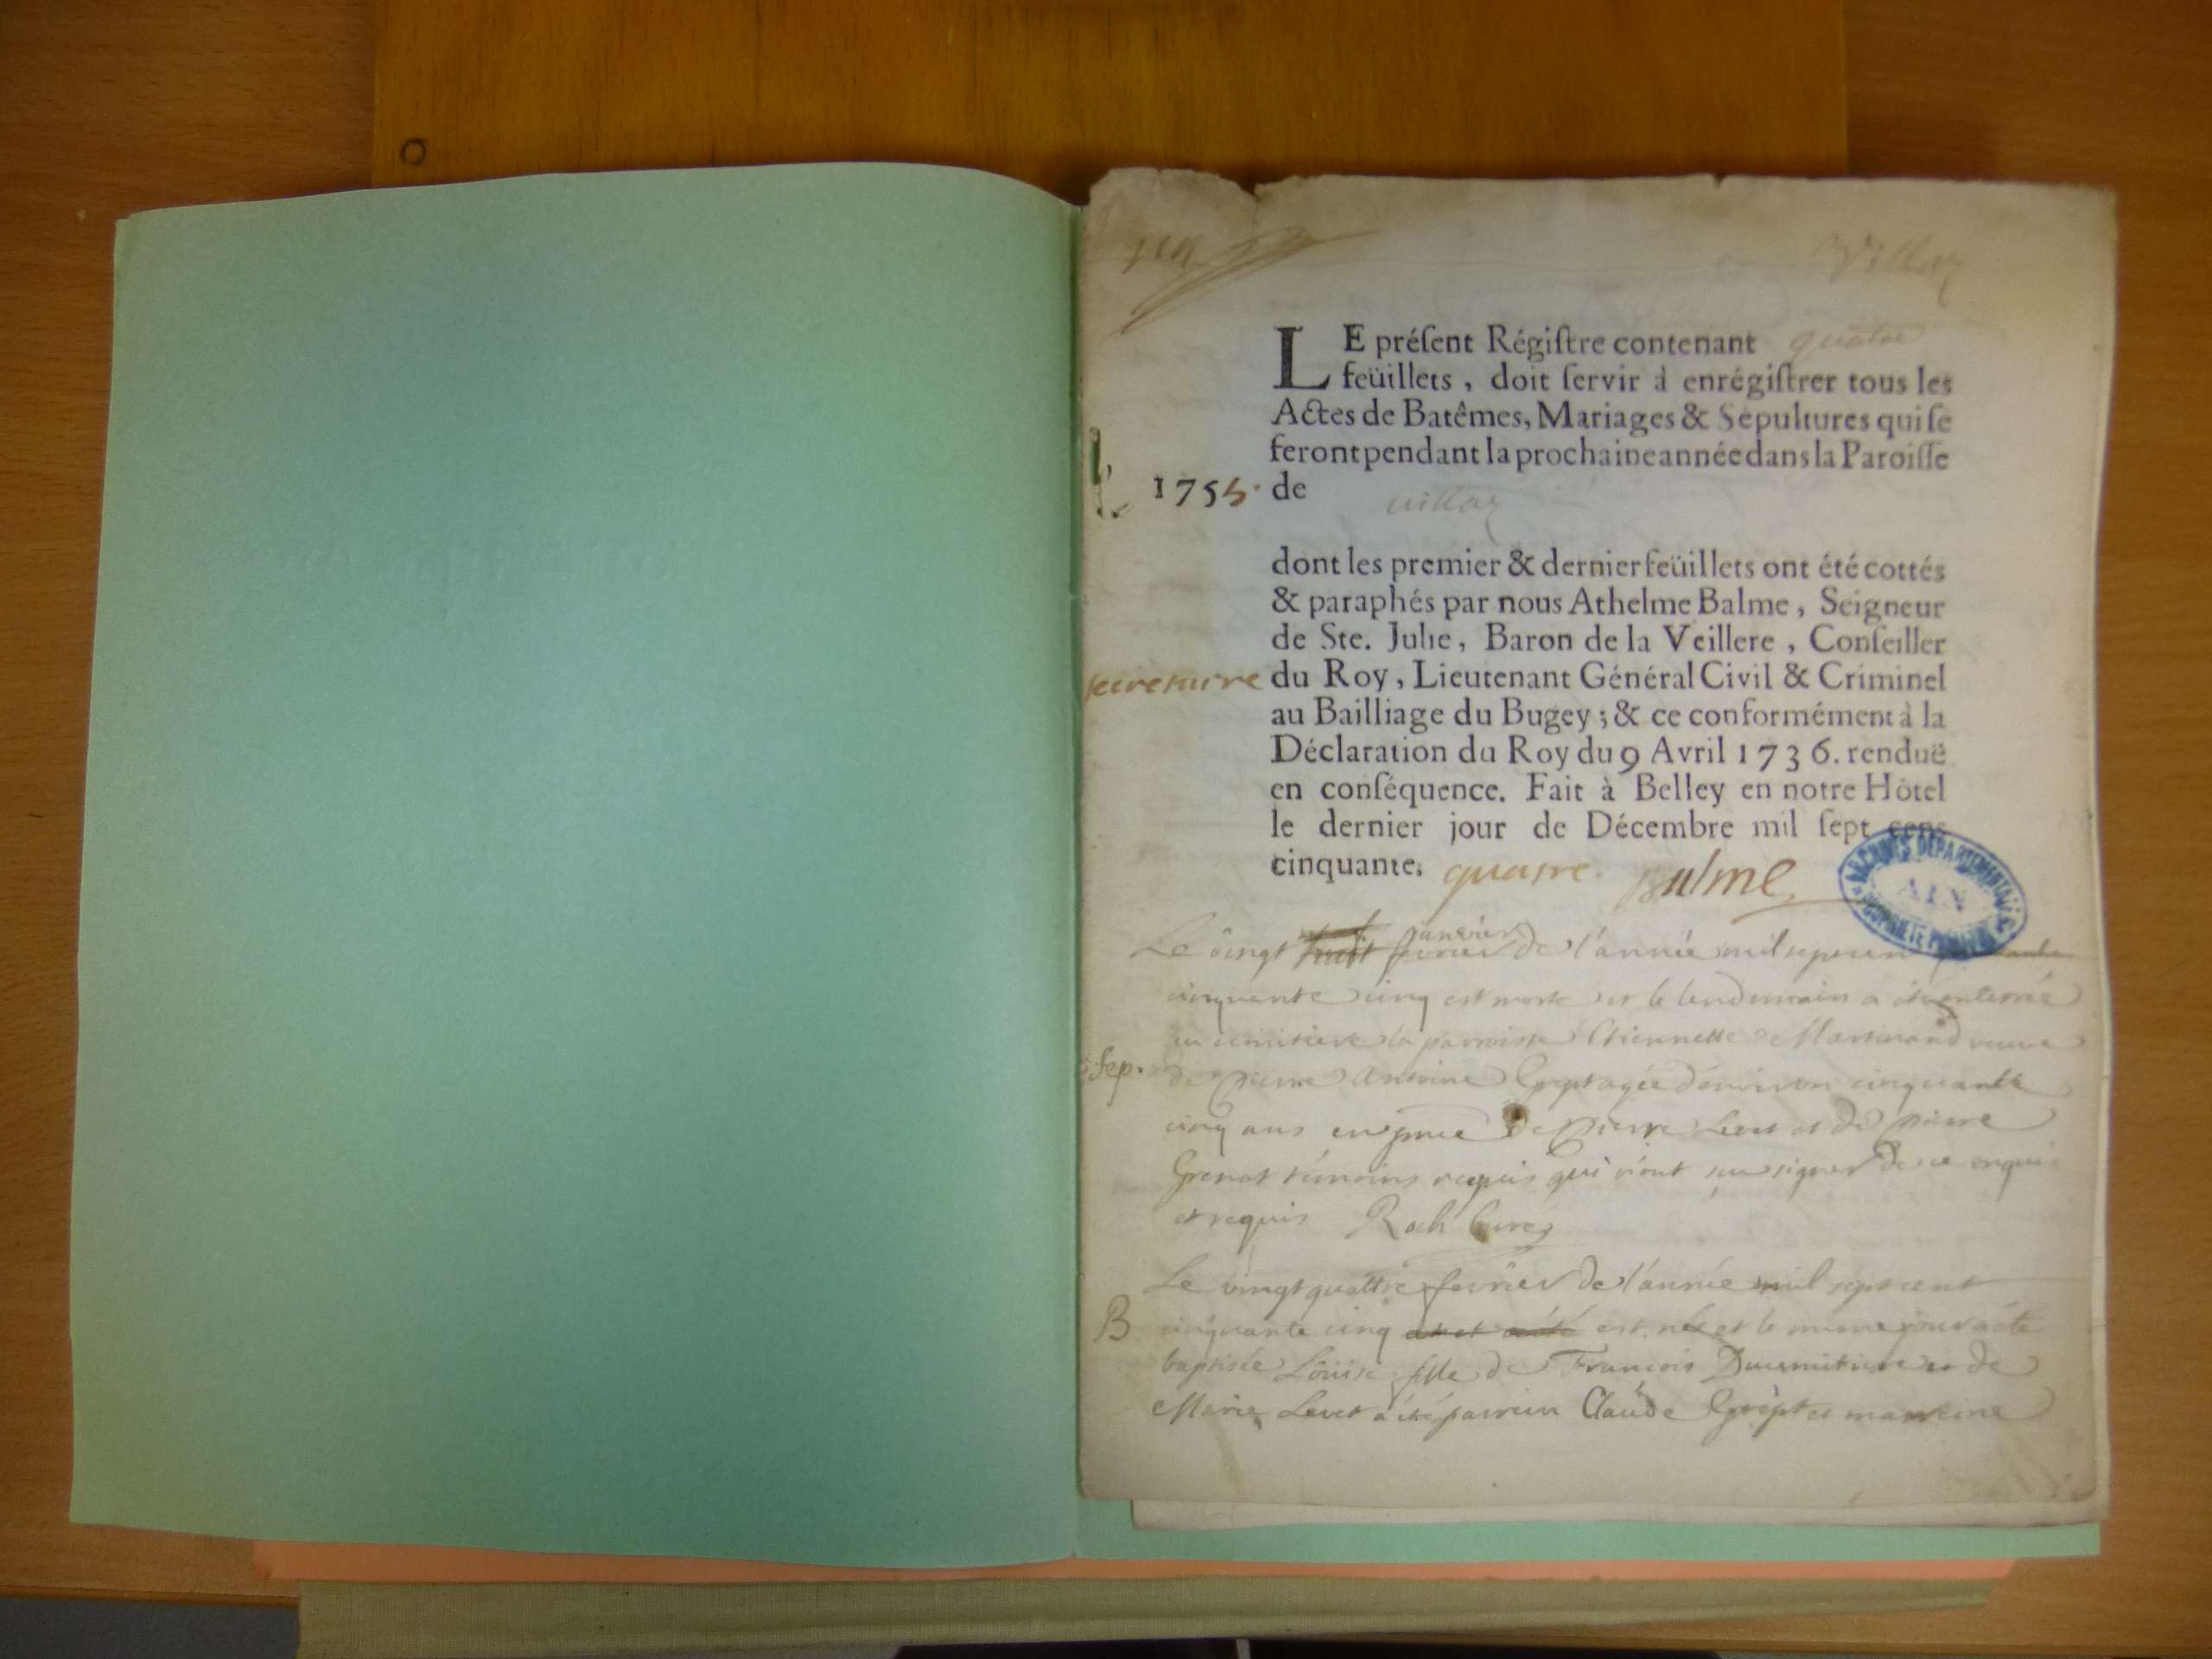 Villaz
LE préſent Régiſtre contenant quatre
feüillets, doit ſervir à enrégiſtrer tous les
Actes de Batêmes, Mariages & Sépultures qui ſe
feront pendant la prochaine année dans la Paroiſſe
1755. de
villaz
dont les premier & dernier feüillets ont été cottés
& paraphés par nous Athelme Balme, Seigneur
de Ste. Julie, Baron de la Veillere, Conſeiller
secretaire du Roy, Lieutenant Général Civil & Criminel
au Bailliage du Bugey; & ce conformément à la
Déclaration du Roy du 9 Avril 1736. renduë
en conſéquence. Fait à Belley en notre Hôtel
le dernier jour de Décembre mil ſept cens
cinquante. quatre. Balme
ARCHIVES DEPARTEMENTALES AIN
Le vingt huit janvier de l'année mil sept cent
cinquante cinq est morte et le lendemain a été enterrée
au cimitiere la parroisse Etiennette Martinand veuve
Sep. de Pierre Antoine Grept agée d'environ cinquante
cinq ans en pnce de Pierre Levet et de Pierre
Grenat témoins requis qui n'ont sçu signer de ce enquis
et requis Roch Curé
Le vingt quattre fevrier de l'année mil sept cent
B. cinquante cinq est née et le meme jour a été
baptisée Loüise fille de François Ducimitiere et de
Marie Levet a été parrein Claude Grept et marreine